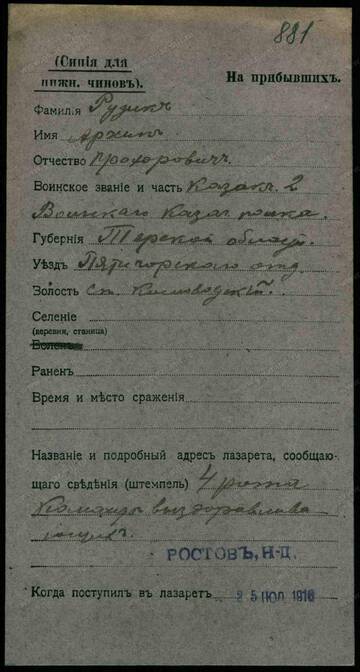 881
(Синія для
нижн. чиновъ).
На прибывшихъ.
Фамилія Рудикъ
Имя Архипъ
Отчество Прохоровичъ
Воинское званіе и часть Казакъ 2
казач. полка.
Губернія Терской област.
Уѣздъ Пятигорскаго отд.
Золость ст. Кисловодской.
Селеніе
(деревня, станица)
Боленъ
Раненъ
Время и мѣсто сраженія
Названіе и подробный адресъ лазарета, сообщаю-
щаго свѣдѣнія (штемпель) 4 рота
Команды выздоравлива
ющихъ.
РОСТОВЪ, Н-Д.
Когда поступил въ лазаретъ 25 ІЮЛ 1916